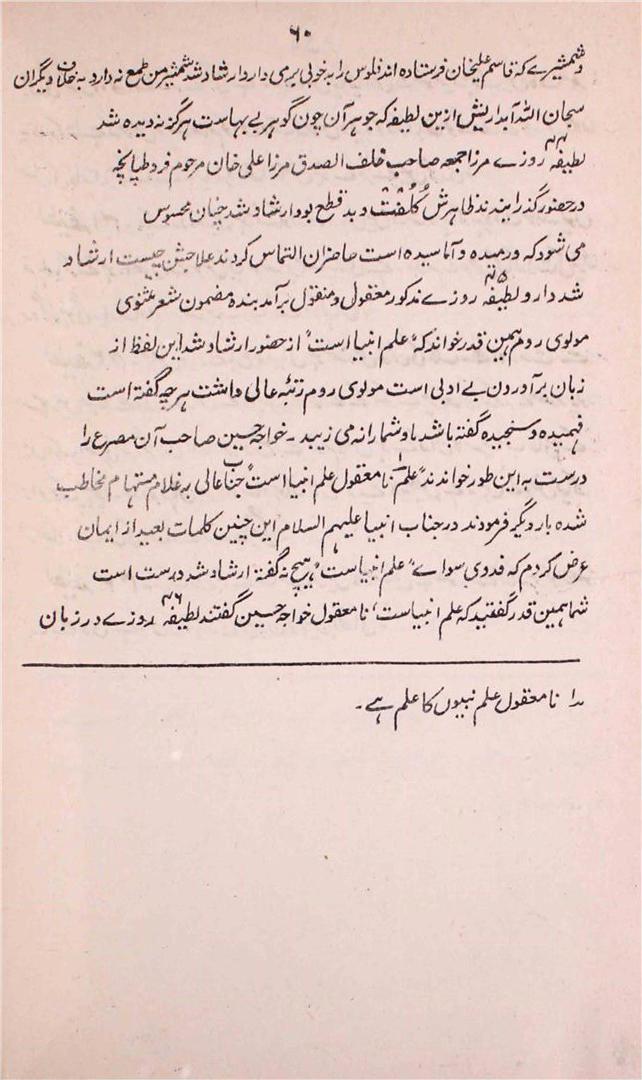 ۶۰
و شمشیرے کہ قاسم علیخان فرستادہ اند فلوس را بہ خوبی بری دارد ارشاد شد شمشیر من طمع نہ دارد بہ خلاف دیگران
سبحان اللہ آبداریش ازین لطیفہ کہ جوہر آن چون گوہر بے بہاست ہرگز نہ دیدہ شد
لطیفہ ۴۴ روزے مرزا جمعہ صاحب خلف الصدق مرزا علی خان مرحوم فرد طپانچہ
در حضور گذرانیدند ظاہرش کُلُفْت و بد قطع بود ارشاد شد چنان محسوس
می شود کہ ورمیدہ و آماسیدہ است حاضران التماس کردند علاجش چیست ارشاد
شد دارو لطیفہ ۴۵ روزے مذکور معقول و منقول برآمد بندۂ مضمون شعر مثنوی
مولوی روم ہمین قدر خواند کہ "علم انبیا است" از حضور ارشاد شد این لفظ از
زبان برآوردن بے ادبی است مولوی روم رتبۂ عالی داشت ہرچہ گفتہ است
فہمیدہ و سنجیدہ گفتہ باشد ما و شما را نہ می زیبد ۔ خواجہ حسین صاحب آن مصرع را
درست بہ این طور خواندند "علم نا معقول علم انبیا است" ۱ جناب عالی بہ غلام مستہام مخاطب
شدہ بار دیگر فرمودند در جناب انبیا علیہم السلام این چنین کلمات بعید از ایمان
عرض کردم کہ فدوی سواے "علم انبیاست" ہیچ نہ گفتہ ارشاد شد درست است
شما ہمین قدر گفتید کہ علم انبیاست، نا معقول خواجہ حسین گفتند لطیفہ ۴۶ روزے در زبان
۱ نا معقول علم نبیوں کا علم ہے ۔